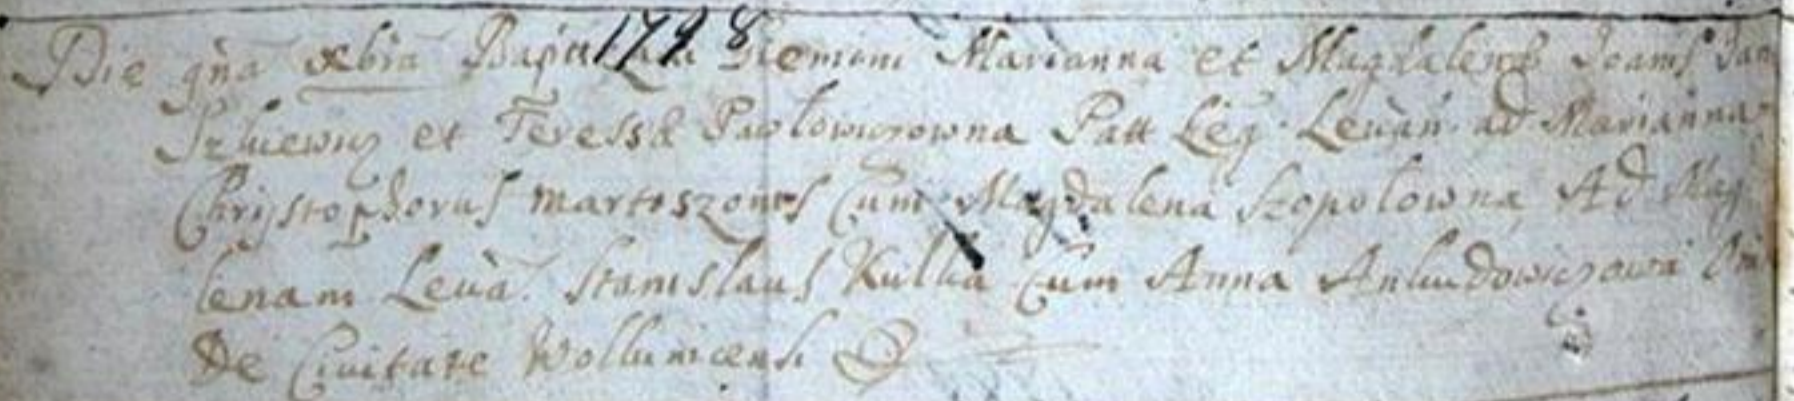 Die qña xbris Bapti 1798 Giemini Marianna et Magdalena Joanis Jan
et Teressa Pawlowiczowna Patt Leg. Levan. ad Marianna
Christophorus Martiszonis Cum Magdalena Szopolowna Ad Mag
lenam Leva. Stanislaus Kulka Cum Anna Ankudowiczowa
De Civitate Wollnicensi